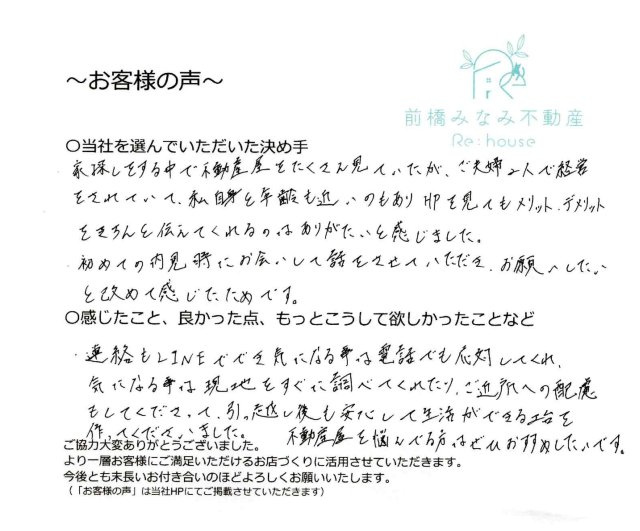 ～お客様の声～
前橋みなみ不動産
Re:house
○当社を選んでいただいた決め手
家探しをする中で不動産屋をたくさん見ていたが、ご夫婦2人で経営
をされていて、私自身と年齢も近いのもありHPを見てもメリット、デメリット
をきちんと伝えてくれるのはありがたいと感じました。
・初めての内見時にお会いして話をさせていただき、お願いしたい
と改めて感じたためです。
○感じたこと、良かった点、もっとこうして欲しかったことなど
・連絡もLINEででき気になる事は電話でも応対してくれ、
気になる事は現地をすぐに調べてくれたり、ご近所への配慮
もしてくださって、引っ越し後も安心して生活ができる土台を
作ってくださいました。 不動産屋を悩んでる方はぜひおすすめしたいです。
ご協力大変ありがとうございました。
より一層お客様にご満足いただけるお店づくりに活用させていただきます。
今後とも末長いお付き合いのほどよろしくお願いいたします。
（「お客様の声」は当社HPにてご掲載させていただきます）